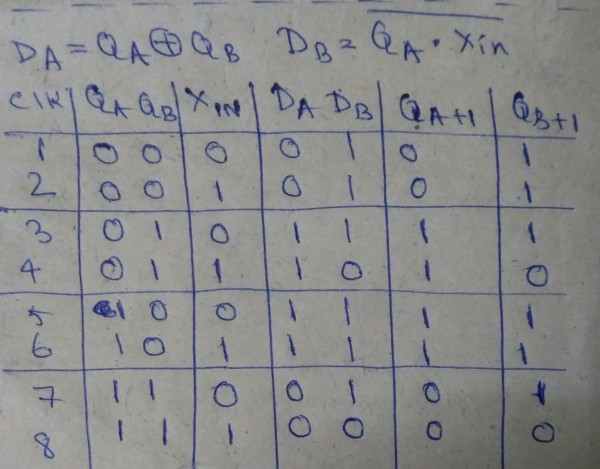 DA = QA ⊕ QB DB = \overline{QA · Xin}
Clk QA QB XIN DA DB QA+1 QB+1
1 0 0 0 0 1 0 1
2 0 0 1 0 1 0 1
3 0 1 0 1 1 1 1
4 0 1 1 1 0 1 0
5 1 0 0 1 1 1 1
6 1 0 1 1 1 1 1
7 1 1 0 0 1 0 1
8 1 1 1 0 0 0 0